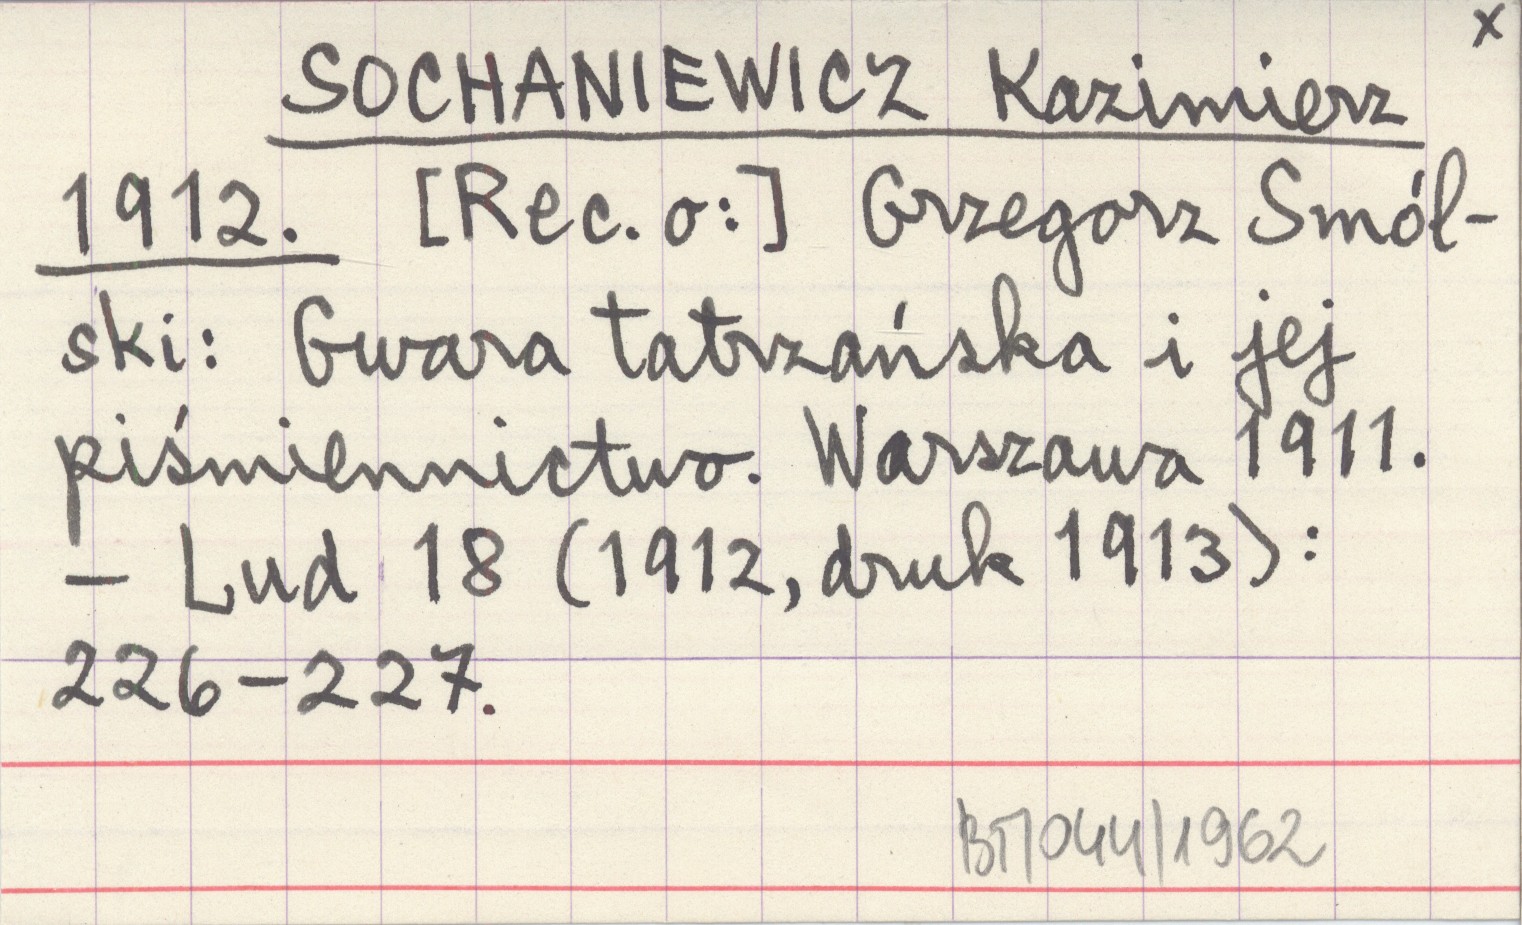 x
SOCHANIEWICZ Kazimierz
1912. [Rec. o:] Grzegorz Smól-
ski: Gwara tatrzańska i jej
piśmiennictwo. Warszawa 1911.
– Lud 18 (1912, druk 1913):
226–227.
BT/044/1962